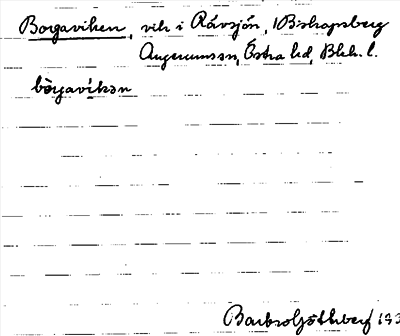 Borgaviken, vik i Rävsjön, 1 Biskopsberg
Angerumssn, Östra hd, Blek. l.
bòrgavíkən
Barbro Götlberg 193